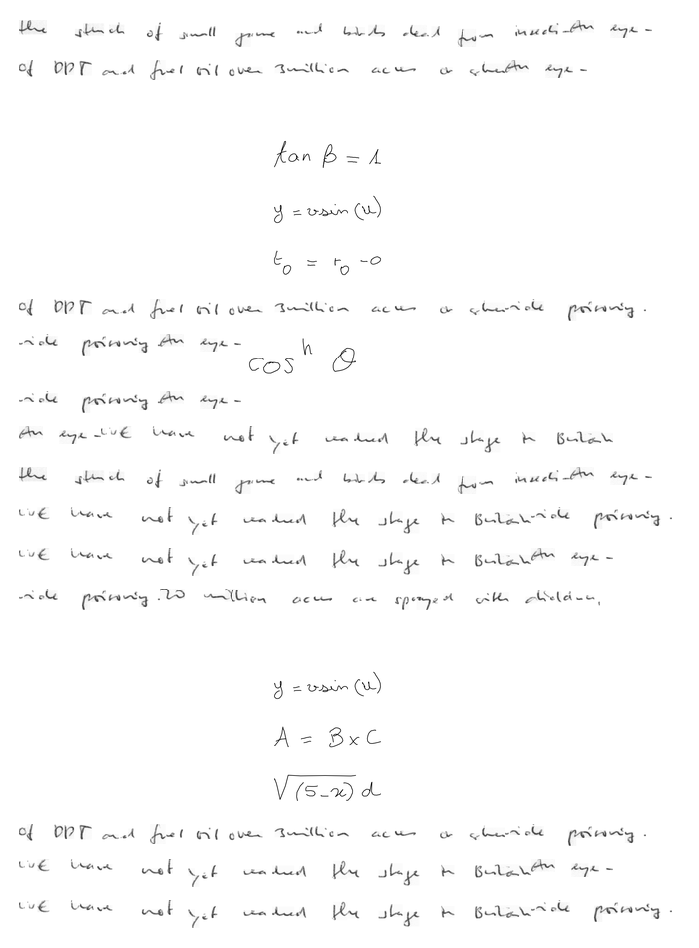 the stench of small game and birds dead from insecti- An eye-
of DDT and fuel oil over 3 million acres a An eye-
tan β = 1
y = v sin (u)
t_0 = r_0 - 0
of DDT and fuel oil over 3 million acres a -cide poisoning.
-cide poisoning An eye-
cos^h θ
-cide poisoning An eye-
An eye- WE have not yet reached the stage in Britain
the stench of small game and birds dead from insecti- An eye-
WE have not yet reached the stage in Britain -cide poisoning.
WE have not yet reached the stage in Britain An eye-
-cide poisoning. 20 million acres are sprayed with dieldrin,
y = v sin (u)
A = B × C
√(5-x) d
of DDT and fuel oil over 3 million acres a -cide poisoning.
WE have not yet reached the stage in Britain An eye-
WE have not yet reached the stage in Britain -cide poisoning.